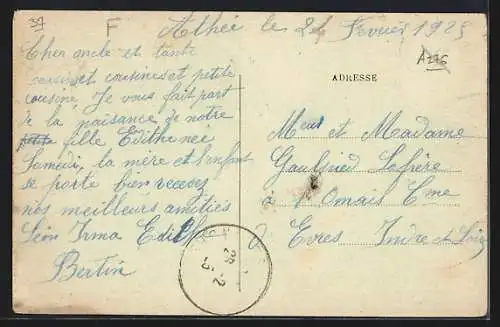 37 F Athée le 24 Fevrier 1925
A276
Cher oncle et tante
cousin et cousines et petite
cousine, Je vous fait part
de la naisance de notre
petite fille Edith née
Samedi, la mère et l'enfant
se porte bien recevez
nos meilleurs amitiés
Léon Irma Edith
Bertin
ADRESSE
Meur et Madame
Gaulfried Lefrère
à Cme
Evres Indre et Loire
28 -2